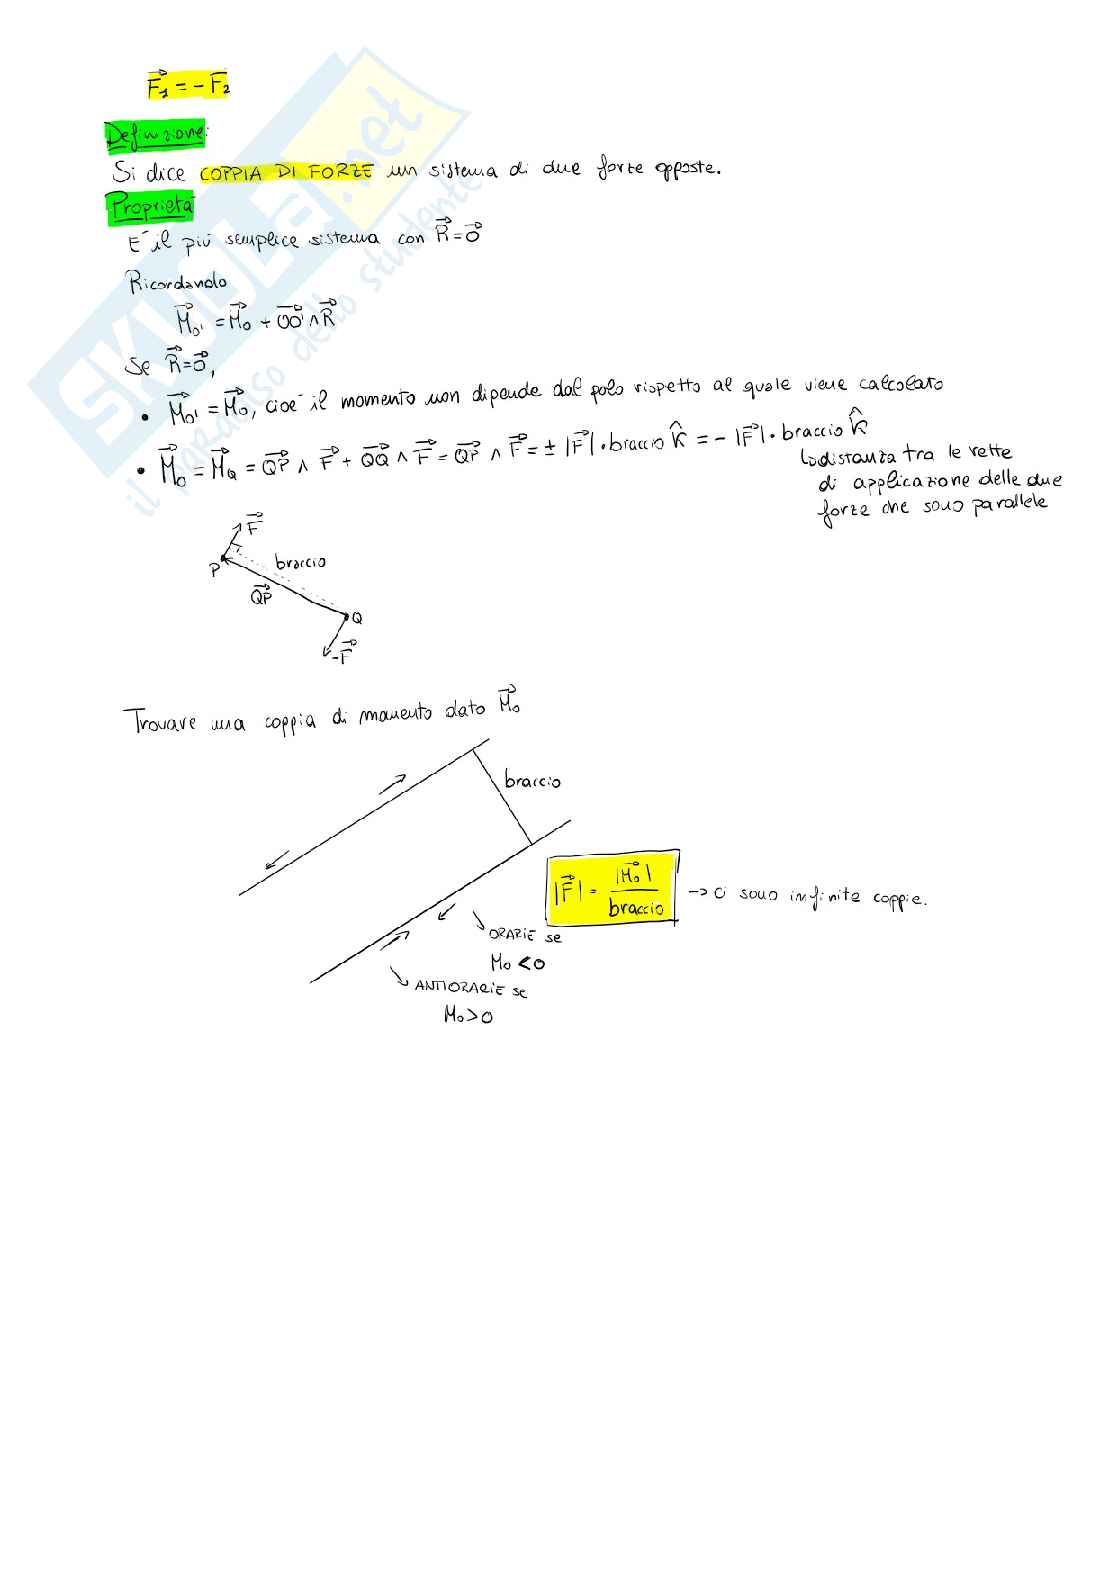 F₁ = - F₂
Definizione:
Si dice COPPIA DI FORZE un sistema di due forze opposte.
Proprietà
E' il più semplice sistema con R⃗=0⃗
Ricordando
M⃗o' = M⃗o + OO'⃗ ∧ R⃗
Se R⃗=0⃗,
• M⃗o' = M⃗o, cioè il momento non dipende dal polo rispetto al quale viene calcolato
• M⃗o = M⃗Q = QP⃗ ∧ F⃗ + QQ⃗ ∧ F⃗ = QP⃗ ∧ F⃗ = ± |F⃗| · braccio k̂ = - |F⃗| · braccio k̂
↳ distanza tra le rette
di applicazione delle due
forze che sono parallele
F⃗
P
braccio
QP⃗
Q
-F⃗
Trovare una coppia di momento dato M⃗o
braccio
|F⃗| = |M⃗o| / braccio → ci sono infinite coppie.
ORARIE se
Mo < 0
ANTIORARIE se
Mo > 0
SKUOLA.net
il paradiso dello studente